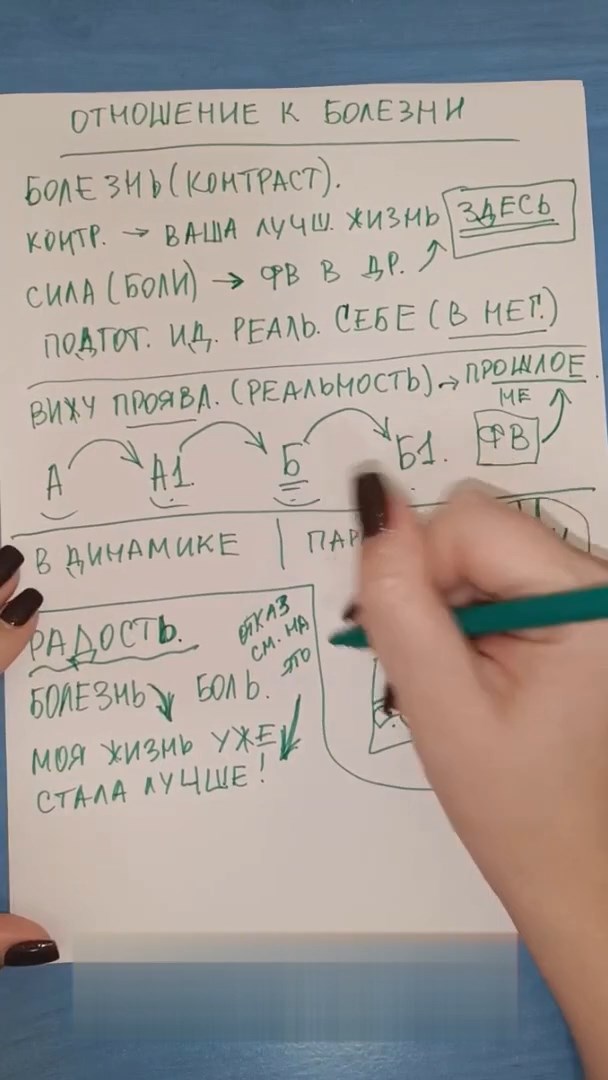 ОТНОШЕНИЕ К БОЛЕЗНИ
БОЛЕЗНЬ (КОНТРАСТ).
КОНТР. → ВАША ЛУЧШ. ЖИЗНЬ ЗДЕСЬ
СИЛА (БОЛИ) → ФВ В ДР.
ПОДГОТ. ИД. РЕАЛЬ. СЕБЕ (В НЕГ.)
ВИЖУ ПРОЯВЛ. (РЕАЛЬНОСТЬ) → ПРОШЛОЕ.
НЕ
А А1. Б Б1. ФВ
В ДИНАМИКЕ | ПАР
РАДОСТЬ.
ОТКАЗ
СМ. НА
ЭТО
БОЛЕЗНЬ↓ БОЛЬ.
МОЯ ЖИЗНЬ УЖЕ
СТАЛА ЛУЧШЕ!